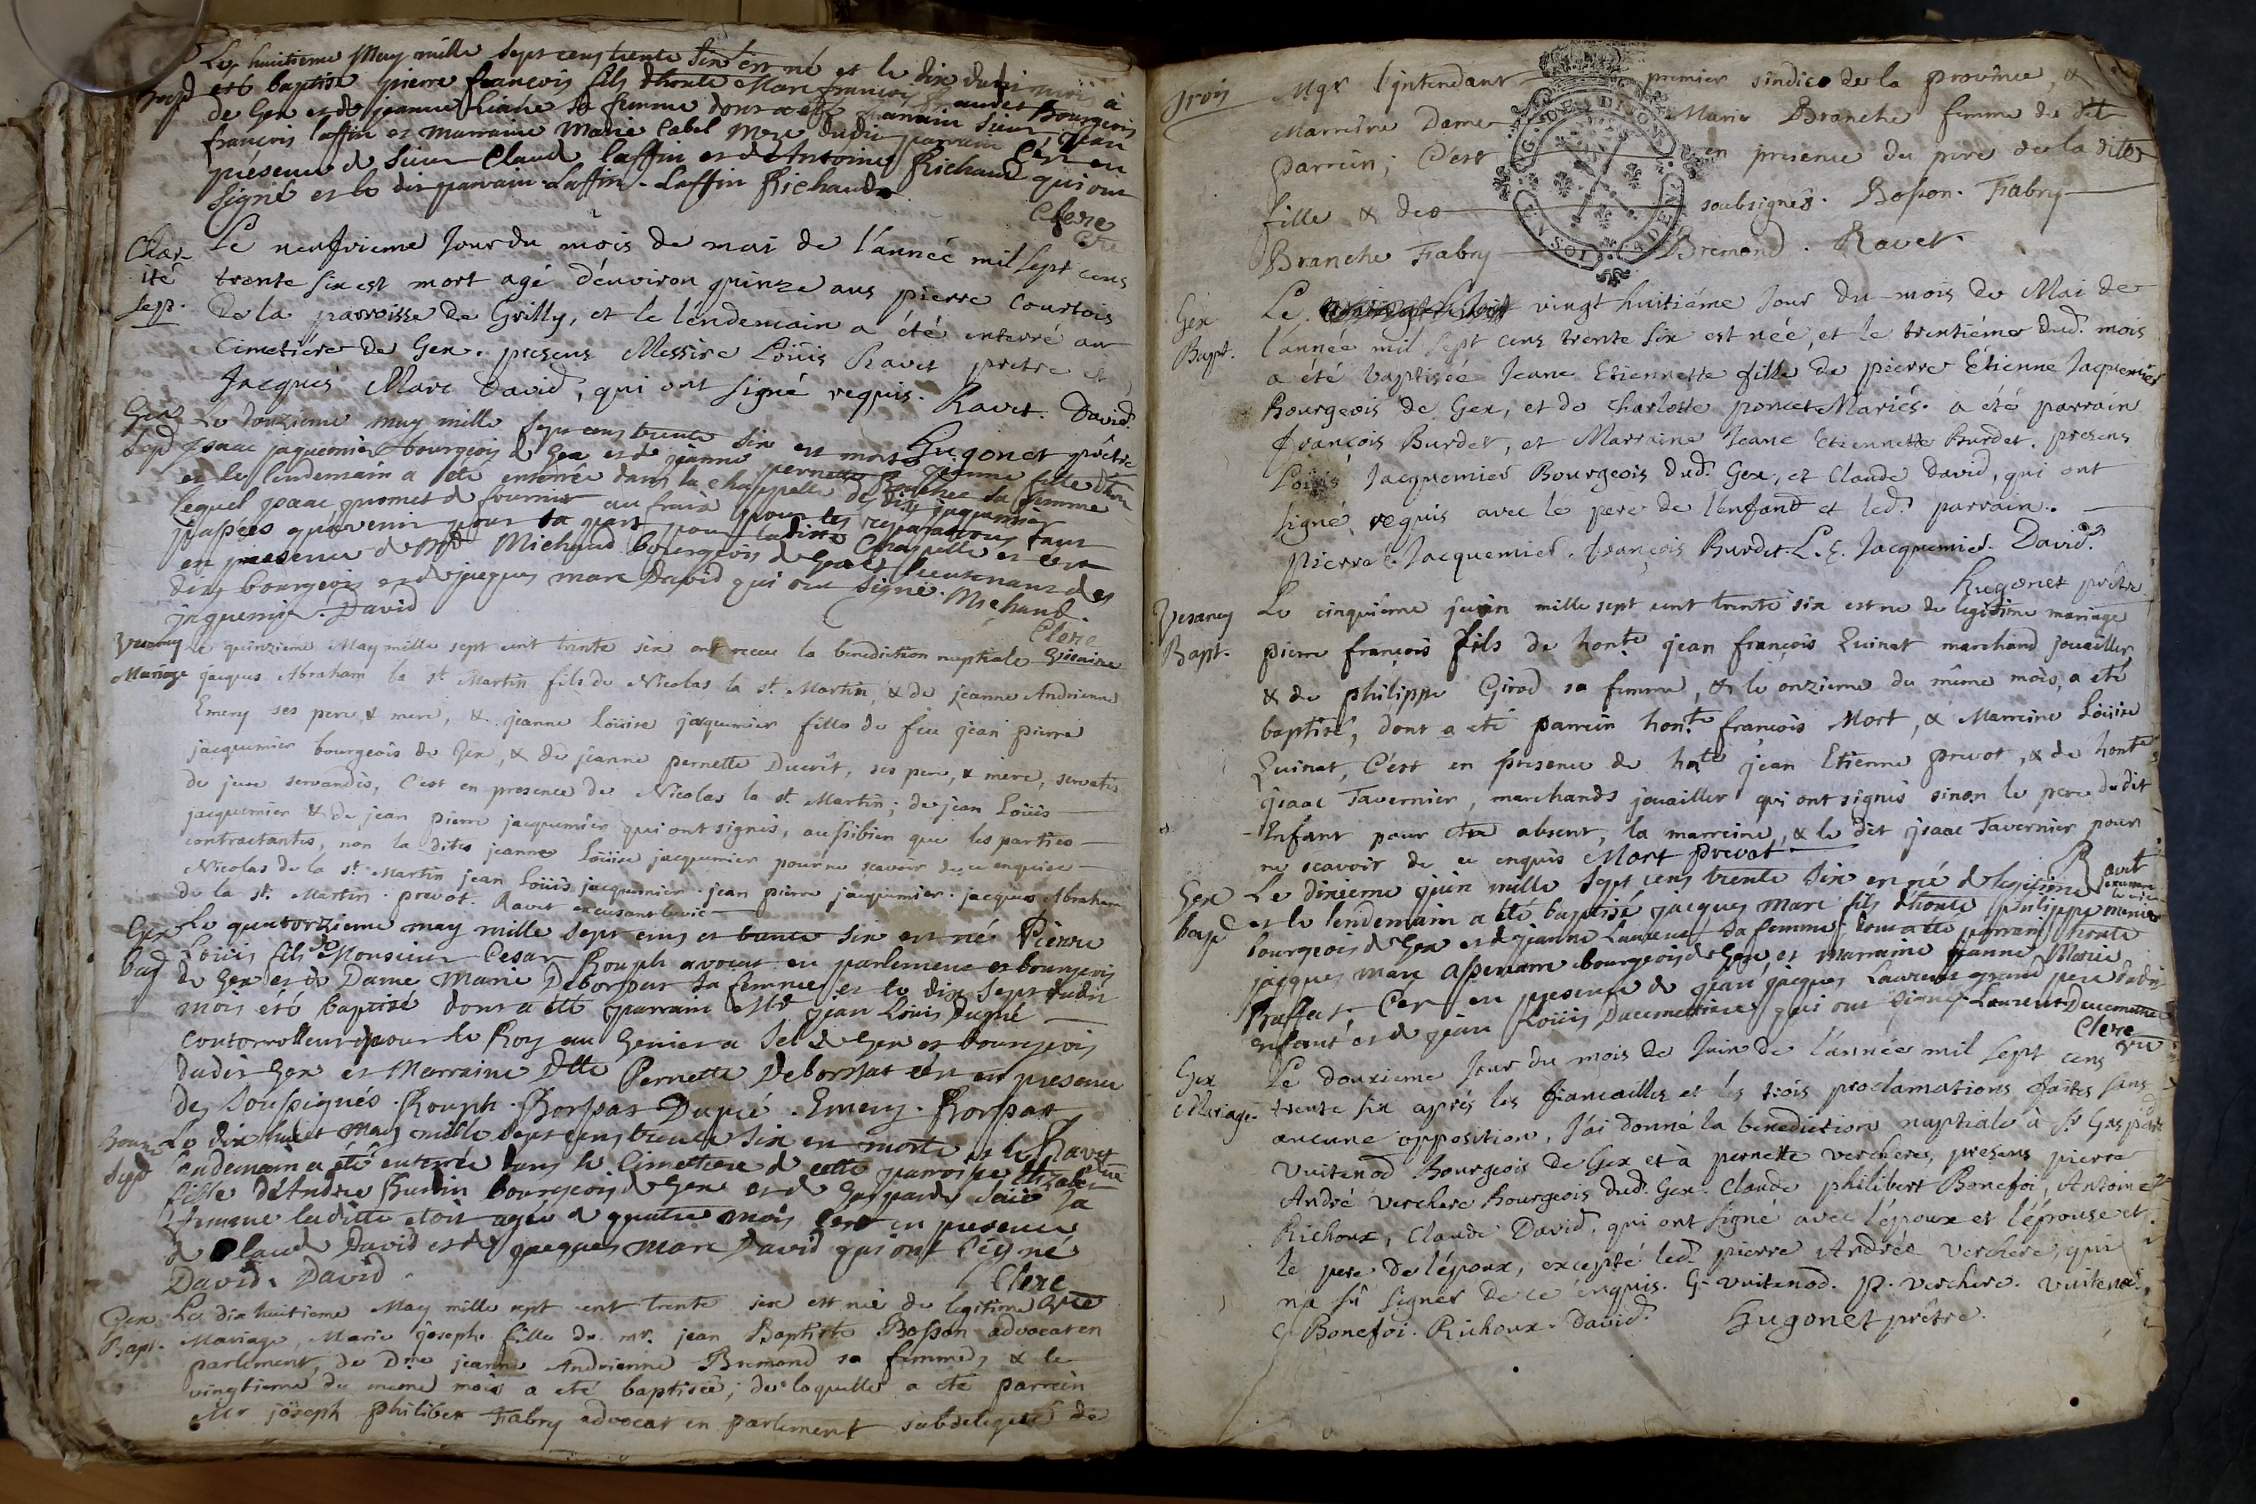 Le huitieme May mille Sept cens trente Six est né et le dix dudit mois a
Bapd été baptisé pierre françois fils dhonte Marc françois Bourgeois
de Gex et de jeanne sa femme dont a été parrain Sieur jean
françois Laffin et marraine Marie Cabel mere dudit parrain C'est en
présence de Sieur Claude Laffin et de Antoine Richaud qui ont
signé et le dit parrain Laffin - Laffin Richaud
Clerc
Char-
ité
Sep.
Le neufvieme Jour du mois de mai de l'année mil Sept cens
trente Six est mort agé d'environ quinze ans pierre Courtois
De la parroisse de Grilly, et le léndemain a été enterré au
Cimetiére de Gex. presens Messire Loüis Ravet pretre et
Jacques Marc David, qui ont signé requis. Ravet. David.
Hugonet prêtre
Gex
Sepd
Le Douzieme may mille Sept cens trente Six est morte jeanne fille dhon
Isaac jaquemier bourgeois de Gex et de jeanne pernette sa femme
et le lendemain a été enterrée dans la chappelle de
lequel isaac promet de fournir au frais pour les reparations tant
passées quavenir pour sa part pour ladite Chapelle et c'est
en presence de Michaud bourgeois de Gex et lieutenant des
dits bourgeois et de jacques marc David qui ont signé. Michaud
jaquemier. David
Clerc
Vicaire
Vesancy
Mariage
Le quinziéme May mille sept cent trente six ont receu la benediction nuptiale
jacques Abraham la st. Martin fils de Nicolas la st. Martin, & de jeanne Andrienne
Emery ses pere & mere, & jeanne Loüise jacquemier fille de feu jean pierre
jacquemier bourgeois de Gex, & de jeanne pernette Ducrêt, ses pere, & mere, servatis
de jure servandis, C'est en presence de Nicolas la st. Martin; de jean Loüis
jacquemier & de jean pierre jacquemier qui ont signés, aussibien que les parties
contractantes, non la dites jeanne Loüise jacquemier pour ne scavoir de ce enquise
Nicolas de la st. Martin jean Loüis jacquemier. jean pierre jacquemier. jacques Abraham
de la st. Martin. prevot. Ravet excusant levic
Gex
Bap
Le quatorzieme may mille Sept cens et trente Six est né Pierre
Loüis fils de Monsieur Cesar Rouph avocat en parlement et bourgeois
de Gex et de Dame Marie Deborssat sa femme et le dix Sept dudit
mois été baptisé dont a été parrain Mr jean Loüis Dupré
Contorrolleur pour le Roy au Grenier a Sel de Gex et bourgeois
dudit Gex et Marraine Dlle Pernette Deborssat c'est en presence
des Soussignés. Rouph. Borssat Dupré. Emery. Borssat
Ravet
Sepd
Le dix huict May mille Sept cens trente Six est morte et le
landemain a eté enterrée dans le Cimetiere de cette parroisse
fille d'Andre Burdin bourgeois de Gex et de Gasparde sa
femme laditte etoit agée de quatre mois c'est en presence
de Claude David et de jacques Marc David qui ont Signé
David. David.
Clerc
vic
Gex
Bapt.
Le dix huitieme May mille sept cent trente six est née de legitime
Mariage, Marie joseph fille de mr. jean Baptiste Bosson advocat en
parlement, de Dne jeanne Andrienne Bremond sa femme, & le
vingtieme du meme mois a eté baptisée; de laquelle a eté parrein
Mr joseph philibert Fabry advocat en parlement subdelegué de
Trois
Mgr l'intendant premier sindic de la province, &
Marreine Dame Marie Branche femme du dit
parrein; C'est en presence du pere de la dite
fille & des soubsignés. Bosson. Fabry
Branche Fabry Bremond. Ravet
Gex
Bapt.
Le vingt huitiéme Jour du mois de Mai de
l'année mil Sept cens trente Six est née, et le trentiéme dud. mois
a été baptisée Jeane Etiennette fille de pierre Etienne Jacquemier
Bourgeois de Gex, et de Charlotte poncet Mariés. a été parrain
François Burdet, et Marraine Jeane Etiennette Burdet. presens
Loüis Jacquemier Bourgeois dud. Gex, et Claude David, qui ont
signé requis avec le pere de l'enfant et led. parrain.
pierre E. Jacquemier. françois Burdet. L. E. Jacquemier. David.
Hugonet prêtre
Vesancy
Bapt.
Le cinquiéme juin mille sept cent trente six est né de legitime mariage
pierre françois fils de honte. jean françois Quinat marchand jouaillier,
& de philippe Girod sa femme, & le onzieme du même mois, a eté
baptisé, dont a eté parrein honte. françois Mort, & Marreine Loüise
Quinat, C'est en presence de honte jean Etienne prevot, & de honte
jsaac Tavernier, marchands jouailler qui ont signés sinon le pere du dit
Enfant pour etre absent, la marreine, & le dit jsaac Tavernier pour
ne scavoir de ce enquis Mort prevot
Ravet
Gex
bapd
Le dixieme juin mille Sept cens trente Six est né de legitime
et le lendemain a été baptisé jacques Marc fils dhonte philippe
bourgeois de Gex et de jeanne Laurent sa femme dont a été parrain honte
jacques Marc bourgeois de Gex et Marraine jeanne Marie
Buffat C'est en presence de jean jacques Laurent grand pere dudit
enfant et de jean Loüis Ducimetiere qui ont signé. Laurent Ducimetiere
Clerc
vic
Gex
Mariage
Le douzieme Jour du mois de Juin de l'année mil Sept cens
trente Six aprés les fiancailles et les trois proclamations faites sans
aucune opposition, J'ai donné la benediction nuptiale à Sr Gaspard
Vuitenod Bourgeois de Gex et à pernette verchere, presens pierre
André verchere Bourgeois dud. Gex. Claude philibert Bonefoi, Antoine
Richoux, Claude David, qui ont signé avec l'époux et l'épouse et
le pere de l'époux, excepté led. pierre André verchere, qui
na sû signer de ce enquis. G. vuitenod. p. verchere. vuitenod.
C. Bonefoi. Richoux. David. Hugonet prêtre.